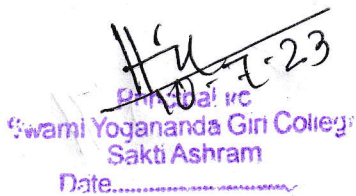 10-7-23
Principal i/c
Swami Yogananda Giri College
Sakti Ashram
Date....................